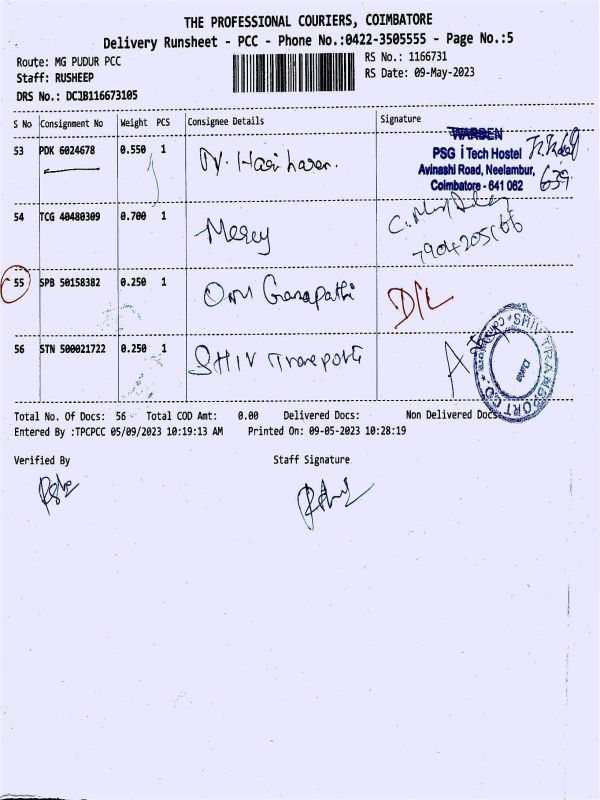 THE PROFESSIONAL COURIERS, COIMBATORE
Delivery Runsheet - PCC - Phone No.:0422-3505555 - Page No.:5
Route: MG PUDUR PCC
RS No.: 1166731
Staff: RUSHEEP
RS Date: 09-May-2023
DRS No.: DCJB116673105
S No Consignment No Weight PCS Consignee Details Signature
53 PDK 6024678 0.550 1 N. Hari haran.
WARDEN
PSG iTech Hostel
Avinashi Road, Neelambur,
Coimbatore - 641 062
639
54 TCG 40480309 0.700 1 Mercy
7904205166
55 SPB 50158382 0.250 1 Om Ganapathi D/L
56 STN 500021722 0.250 1 SHIV Transports
SHIV TRANSPORT CO.
Total No. Of Docs: 56 Total COD Amt: 0.00 Delivered Docs: Non Delivered Docs
Entered By :TPCPCC 05/09/2023 10:19:13 AM Printed On: 09-05-2023 10:28:19
Verified By Staff Signature